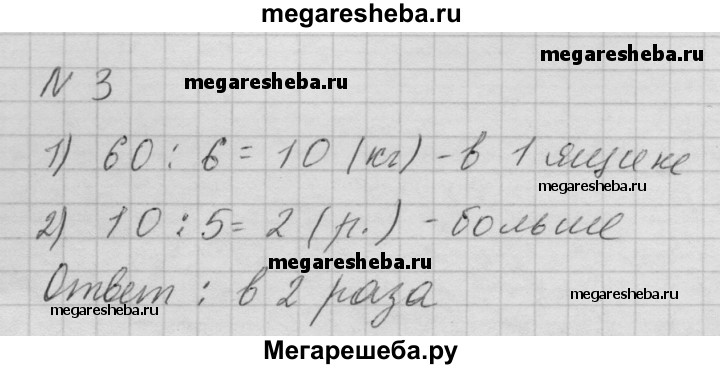 megaresheba.ru
megaresheba.ru
N 3
megaresheba.ru
1) 60 : 6 = 10 (кг) - в 1 ящике
megaresheba.ru
2) 10 : 5 = 2 (р.) - больше
megaresheba.ru
Ответ : в 2 раза
megaresheba.ru
megaresheba.ru
Мегарешеба.ру